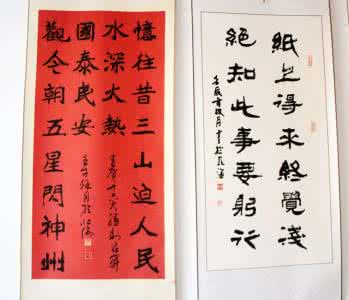 憶往昔三山迫人民
水深火熱
國泰民安
觀今朝五星閃神州
紙上得來終覺淺
絕知此事要躬行